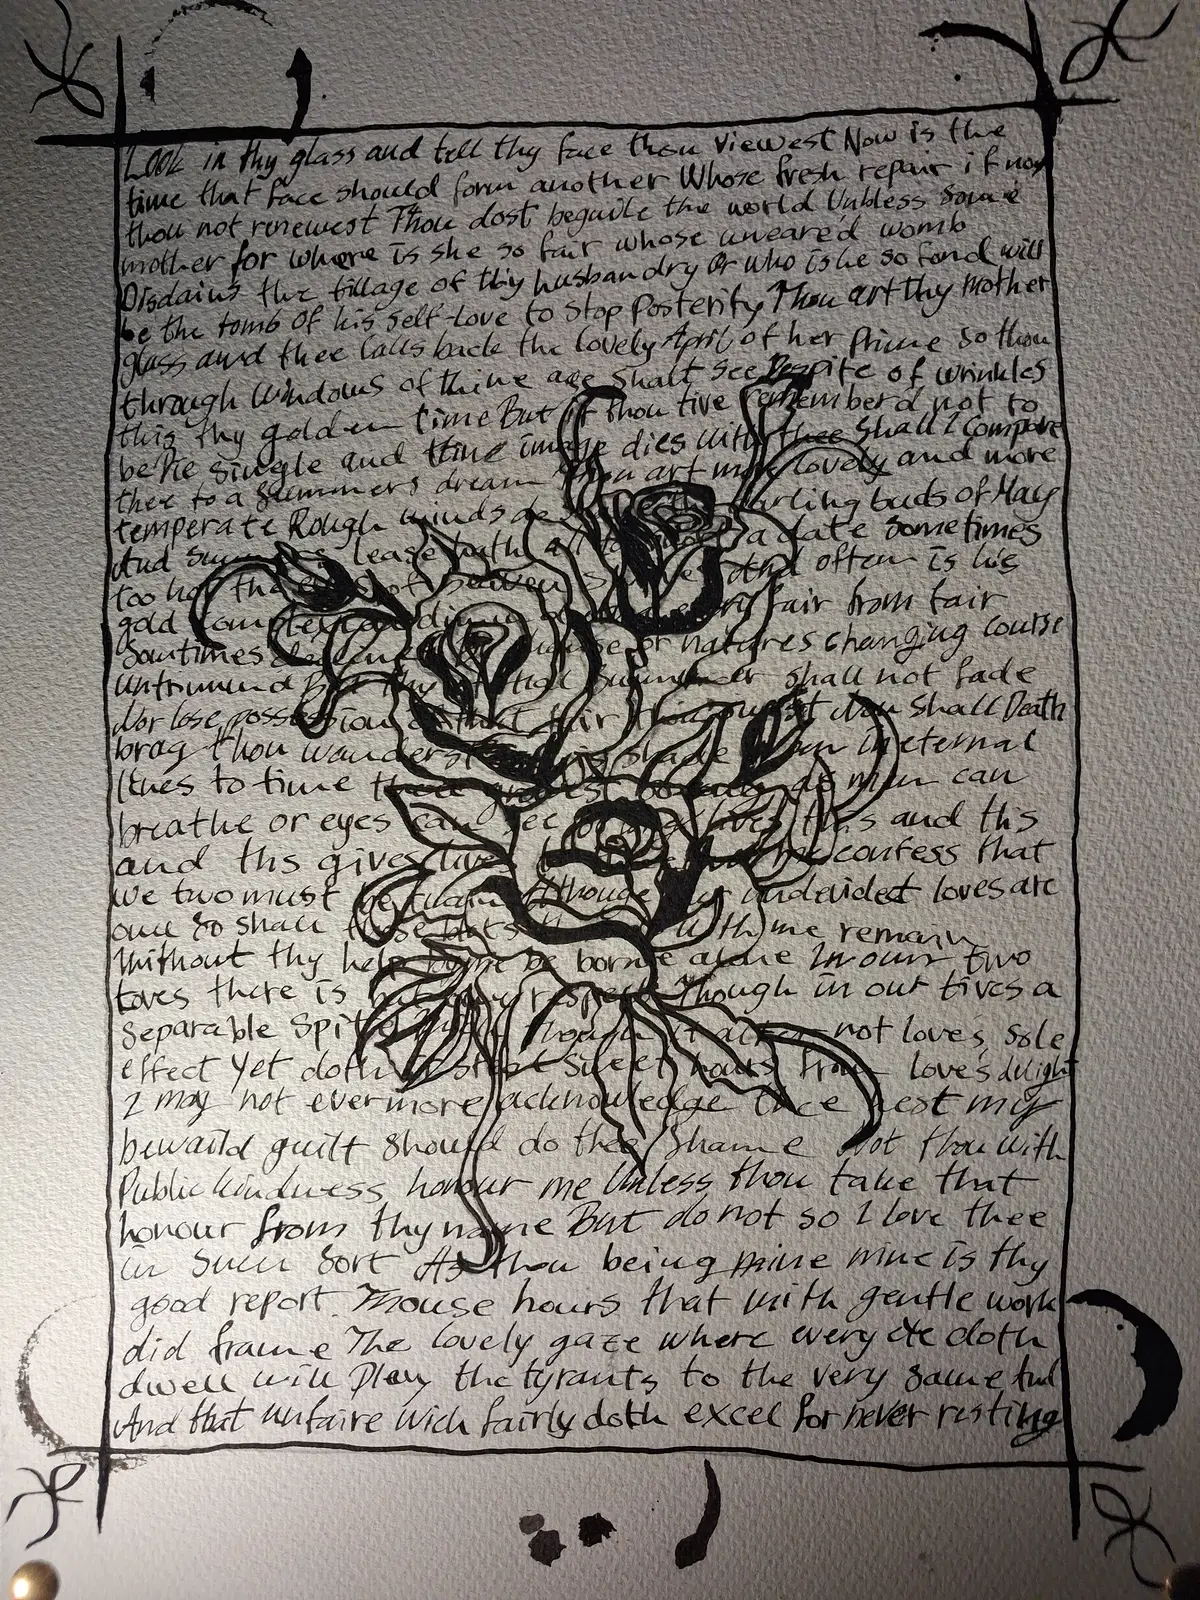 Look in thy glass and tell thy face thou viewest Now is the
time that face should form another Whose fresh repair if now
thou not renewest Thou dost beguile the world Unbless some
mother for where is she so fair whose uneared womb
Disdains the tillage of thy husbandry Or who is he so fond will
be the tomb of his self-love to stop Posterity Thou art thy mother
glass and thee calls back the lovely April of her prime So thou
through windows of thine age shalt see Despite of wrinkles
this thy golden time But if thou live remember'd not to
be Die single and thine image dies with thee Shall I Compare
thee to a Summers dream Thou art more lovely and more
temperate Rough winds do darling buds of May
And Summers lease hath all too a date Sometimes
too hot the of heaven shines And often is his
gold complexion every fair from fair
Somtimes or natures changing course
untrimmd But thy Summer shall not fade
Nor lose possession of that fair Nor shall Death
brag thou wanderst in his shade When in eternal
lines to time as man can
breathe or eyes can see lives this and ths
and ths gives live me confess that
we two must be twain Although our undevided loves are
one So shall those blots with me remain
Without thy help by me be borne alone In our two
loves there is but one respect Though in out lives a
separable Spite though it alter not loves sole
effect Yet doth it steal Sweet hours from love's delight
I may not ever more acknowledge thee lest my
bewaild guilt should do thee shame Not thou with
Public kindness honour me Unless thou take that
honour from thy name But do not so I love thee
in such sort As thou being mine mine is thy
good report. Thouse hours that with gentle work
did frame The lovely gaze where every eye doth
dwell will Play the tyrants to the very same And
And that unfaire wich fairly doth excel for never resting